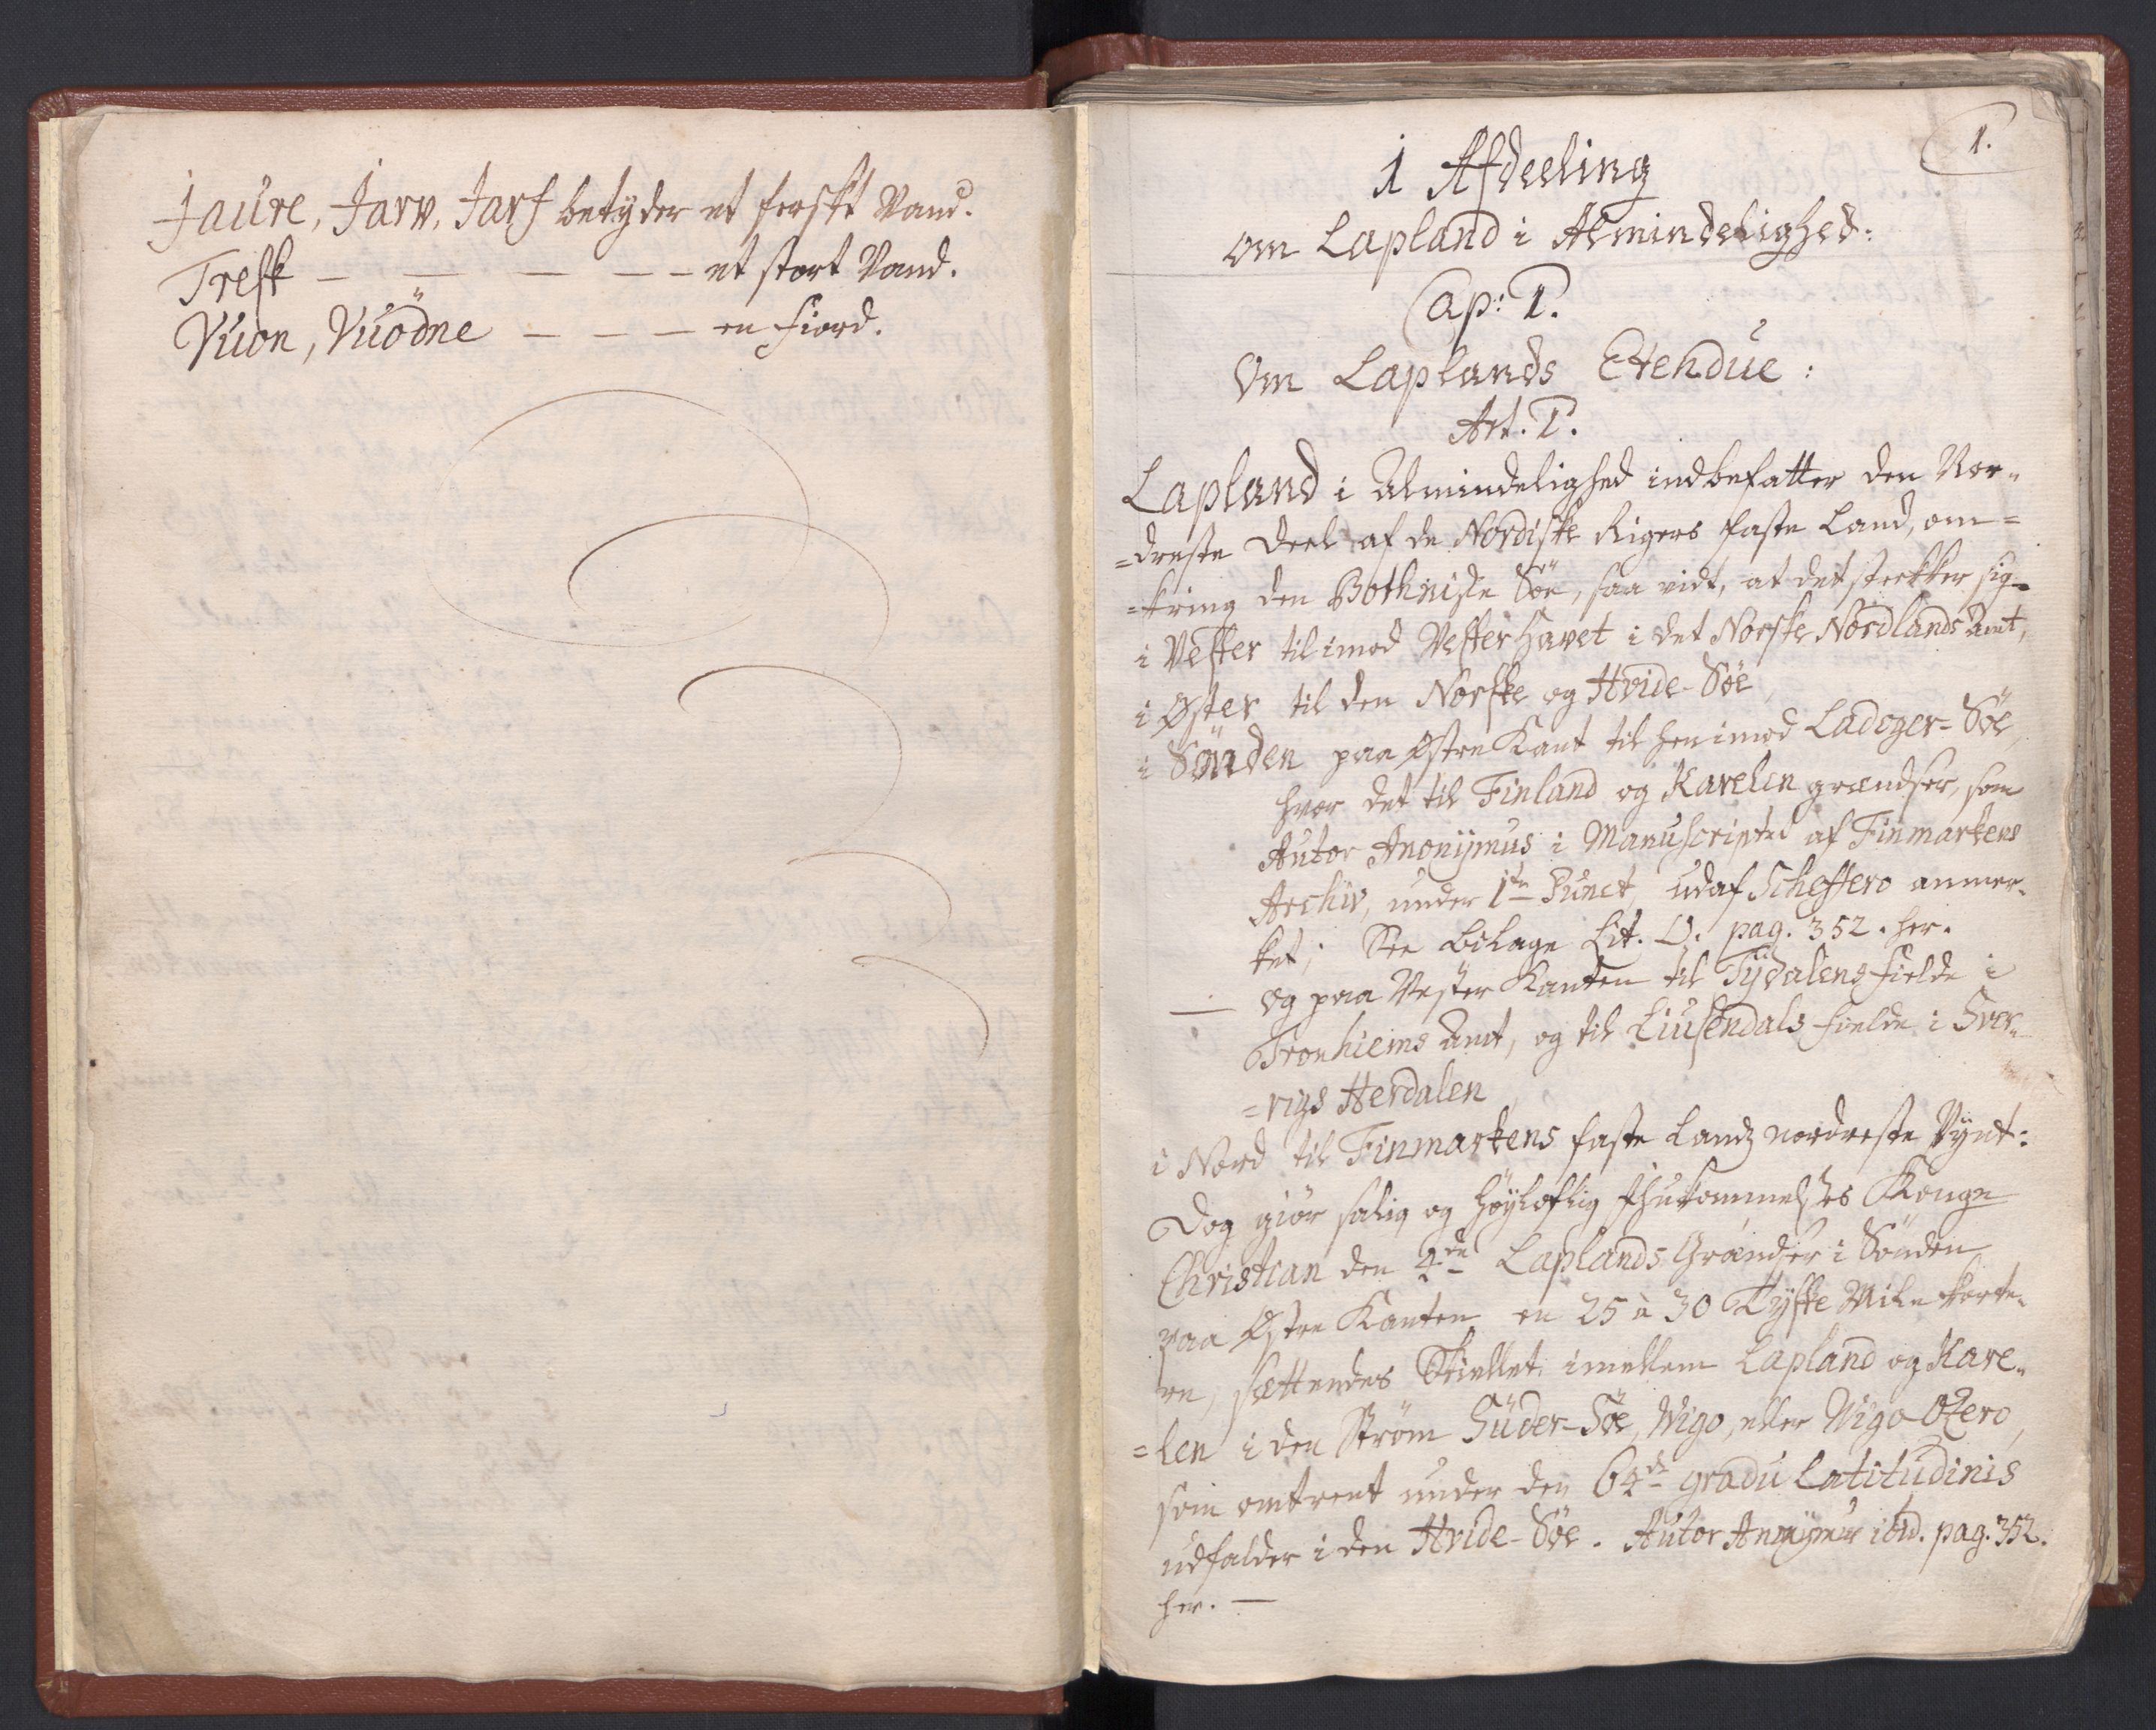 Jaure, Jarv, Jarf betyder et ferskt Vand.
Tresk — — — — — et stort Vand.
Vuon, Vuödne — — — en Fiord.
1.
1 Afdeeling
om Lapland i Almindelighed:
Cap: 1.
Om Laplands Etendue:
Art. 1.
Lapland i Almindelighed indbefatter den Nor„
=dreste Deel af de Nordiske Rigers faste Land, om=
=kring den Bothniske Söe, saa vidt, at det strekker sig
i Vester til imod Vester Havet i det Norske Nordlands Amt,
i Öster til den Norske og Hvide-Söe
i Sönden paa Östre Kant til hen imod Ladoger-Söe,
hvor det til Finland og Karelen grændser, som
Autor Anonymus i Manuscriptet af Finmarkens
Archiv, under 1te Punct, udaf Scheffero anmer„
ket; See Bilage Lit. O. pag. 352. her.
— og paa Vester Kanten til Tydalens Fielde i
Tronhiems Amt, og til Liusendals Fielde i Sver„
=rigs Herdalen
i Nord til Finmarkens faste Lands nordreste Pynt:
Dog giør salig og Høyloflig Ihukommelses Konge
Christian den 4de Laplands Grændser i Sönden
paa Östre Kanten en 25 à 30 Tyske Mile korte„
re, settendes Skiellet imellem Lapland og Kare„
=len i den Strøm Süder-Söe, Wigo, eller Wigo Ozero,
som omtrent under den 64de gradu Latitudinis
udfalder i den Hvide-Söe. Autor Anonymus ibid. pag. 352.
her. —